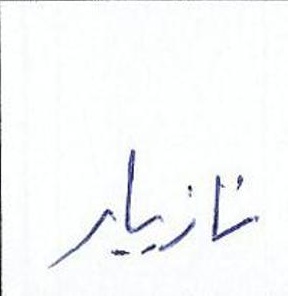 نازيار